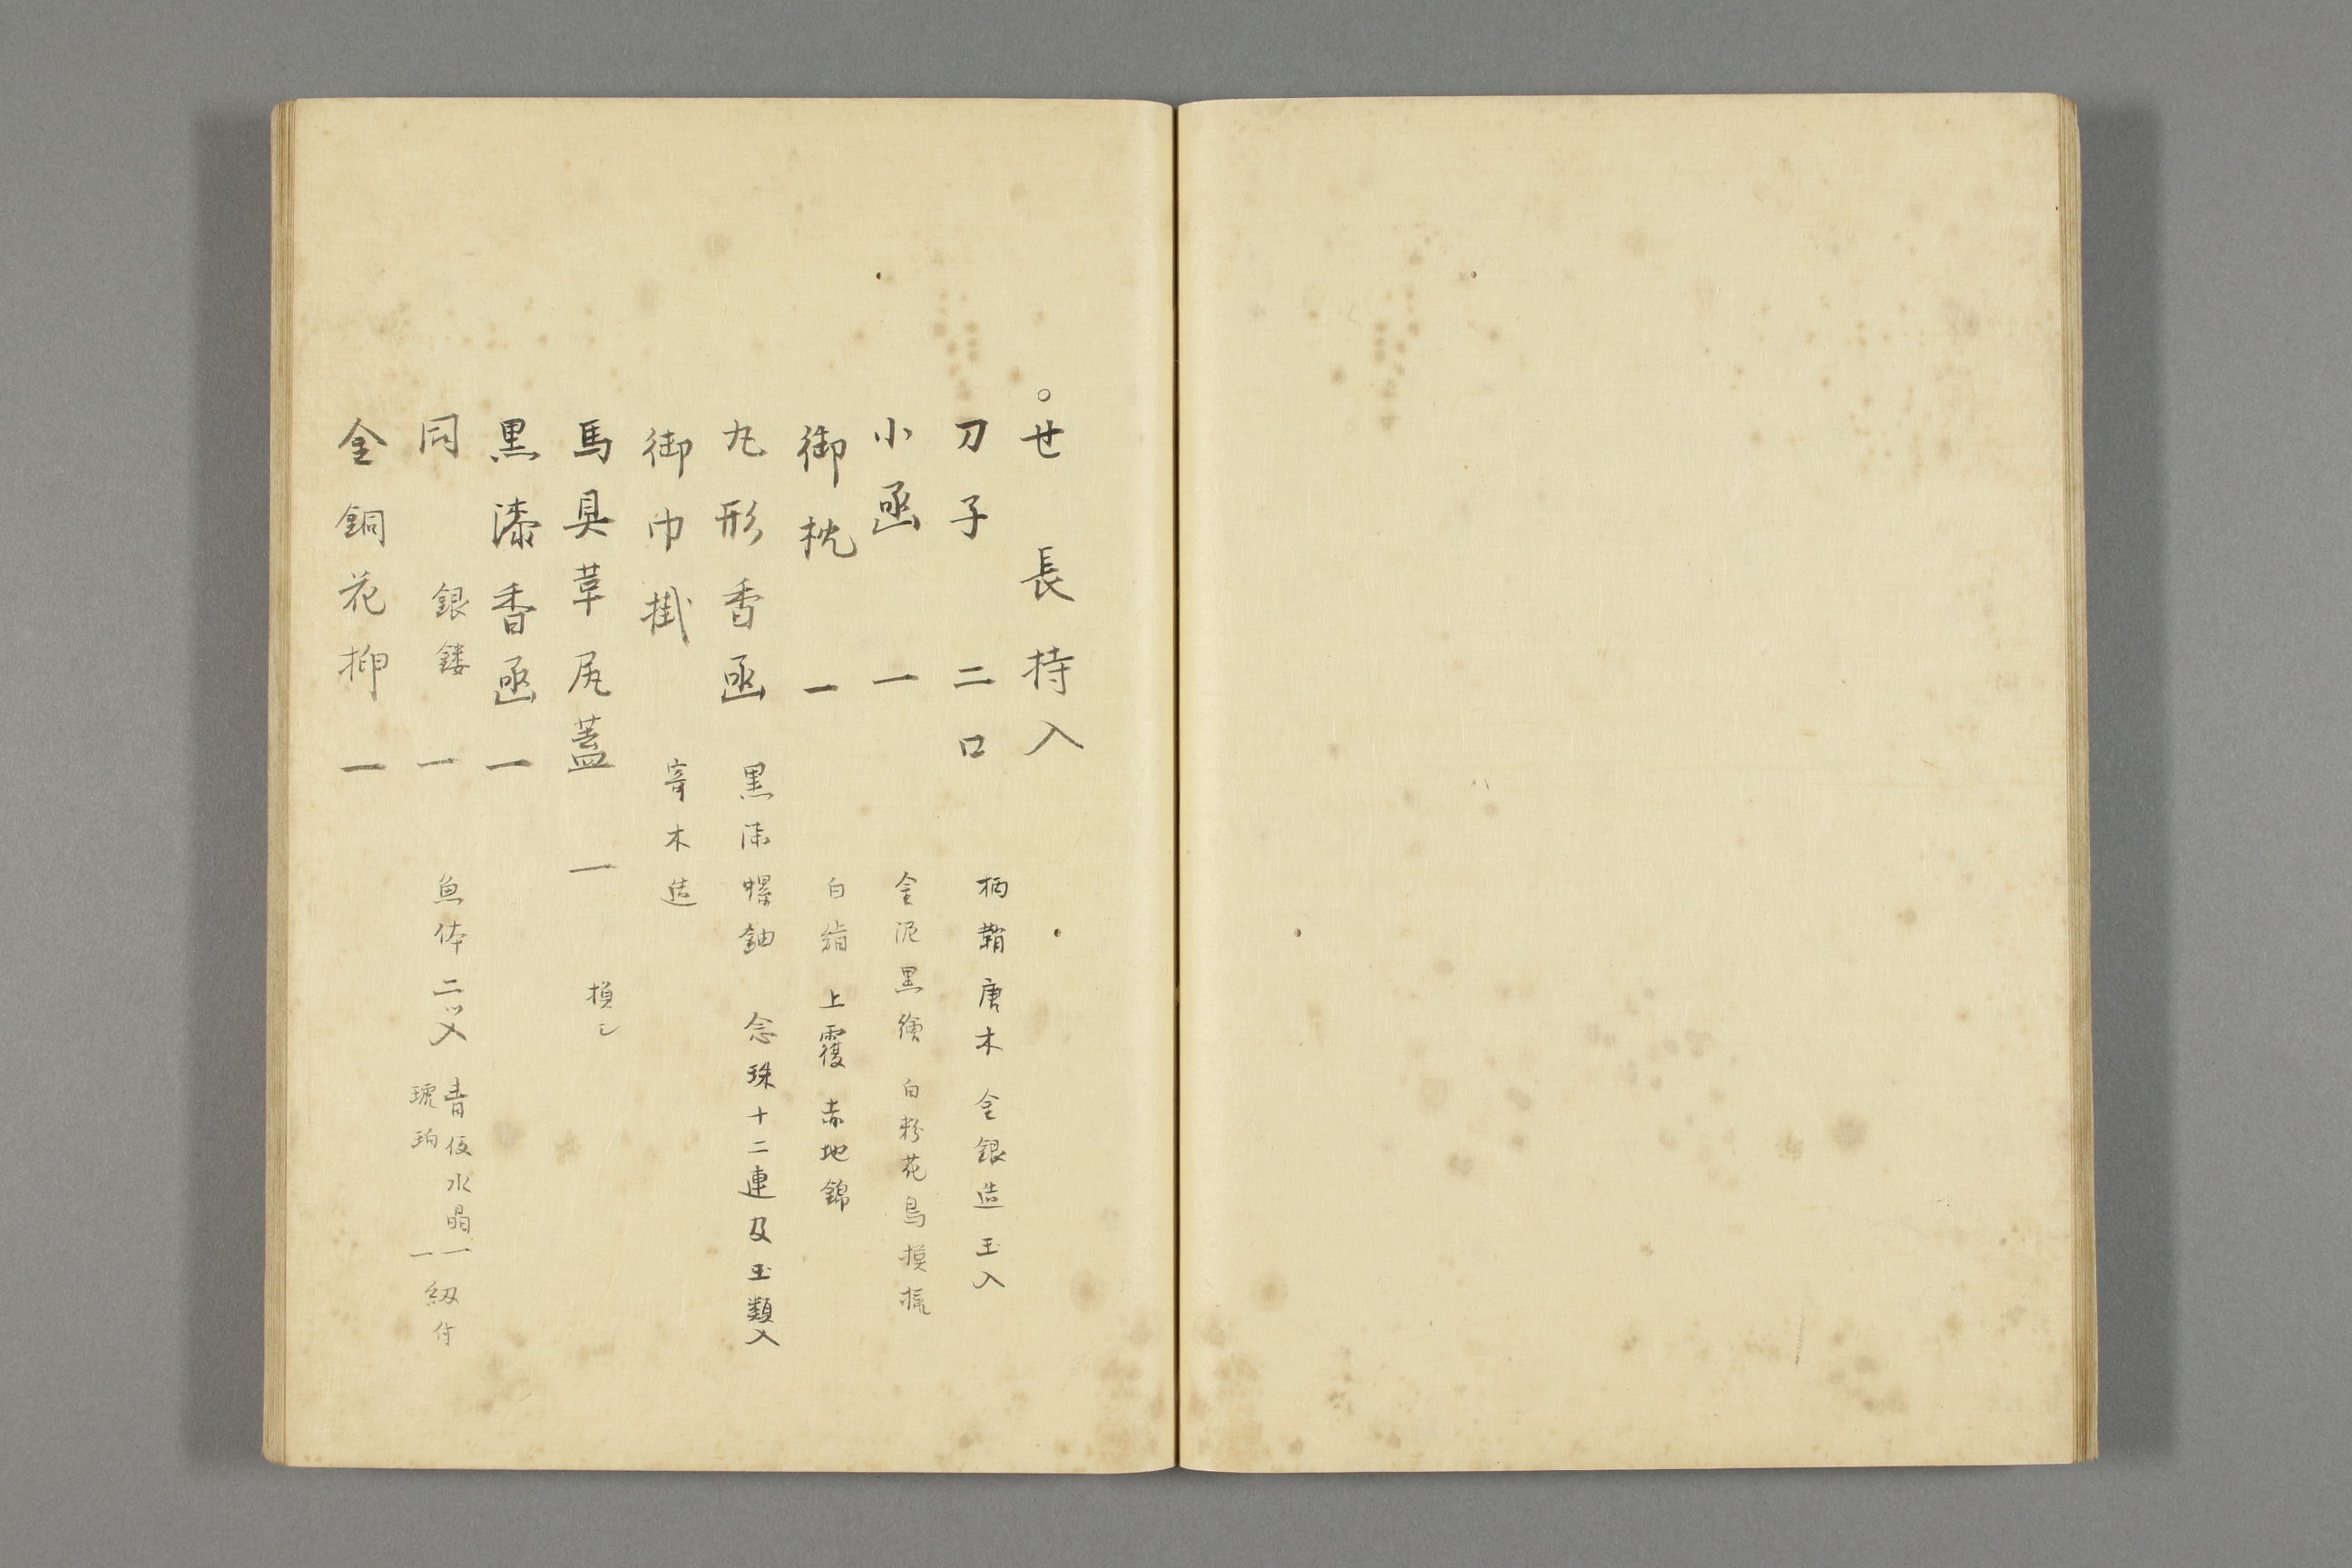 ○せ 長持入
刀子 二口 柄鞘唐木 金銀造 玉入
小函 一 金泥黒繪 白粉花鳥摸様
御枕 一 白絹 上覆 赤地錦
丸形香函 黒漆螺鈿 念珠十二連及玉類入
御巾掛 寄木造
馬具草尻蓋 一 損シ
黒漆香函 一
同 銀鏤 一 魚体二ツ入 青仮水晶一 琥珀一 紐付
金銅花押 一